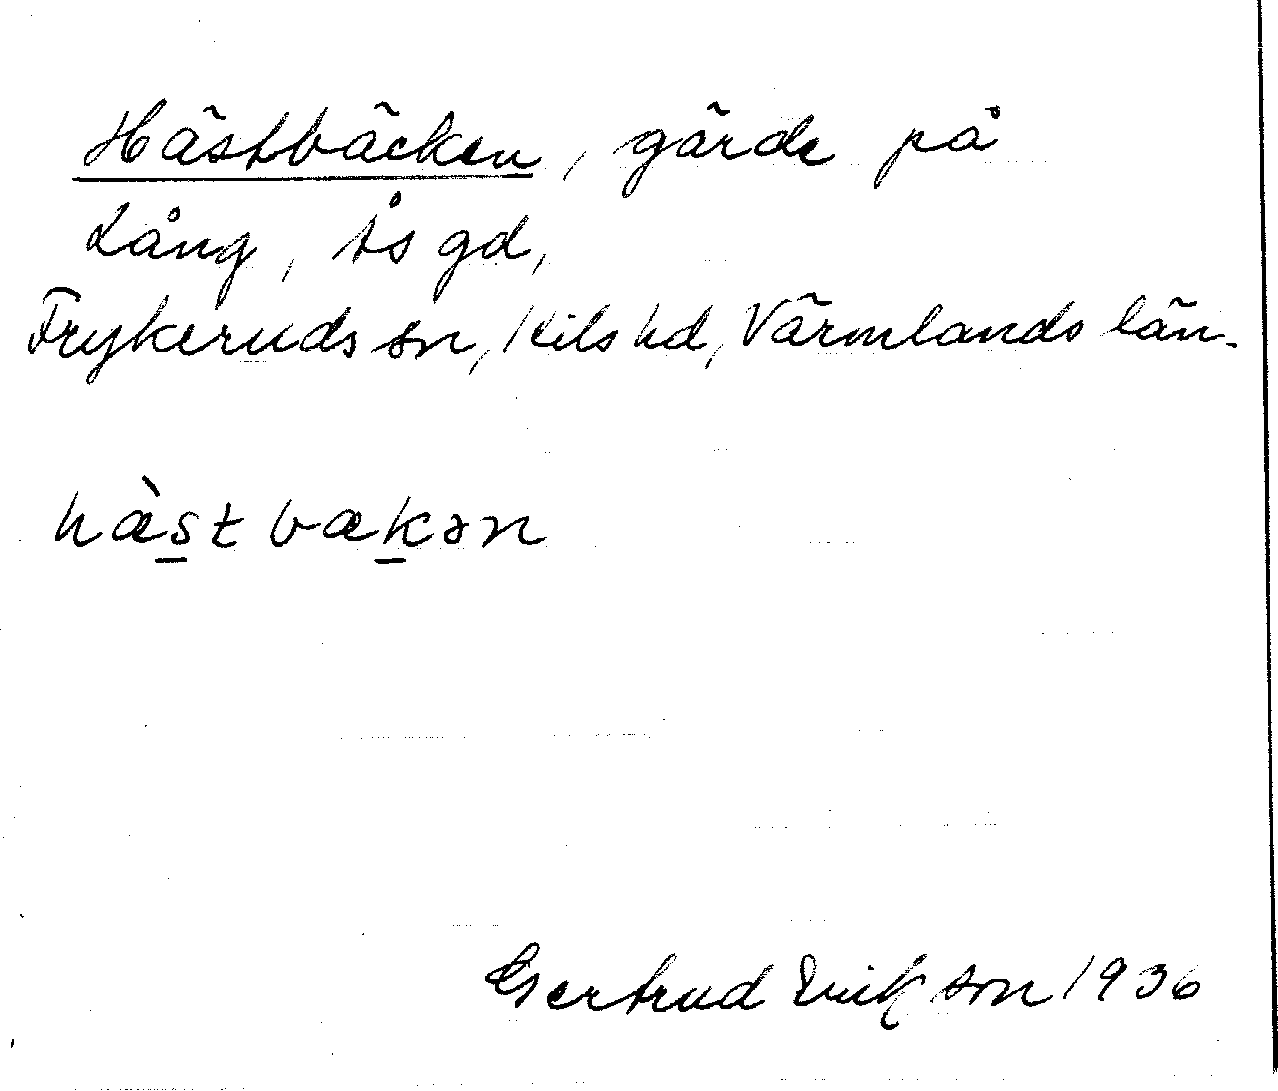 Hästbäcken, gärde på
Lång, by o gd,
Frykeruds sn, Kils hd, Värmlands län.
hæ̀s̲t bæk̲ən
Gertrud Erikson 1936